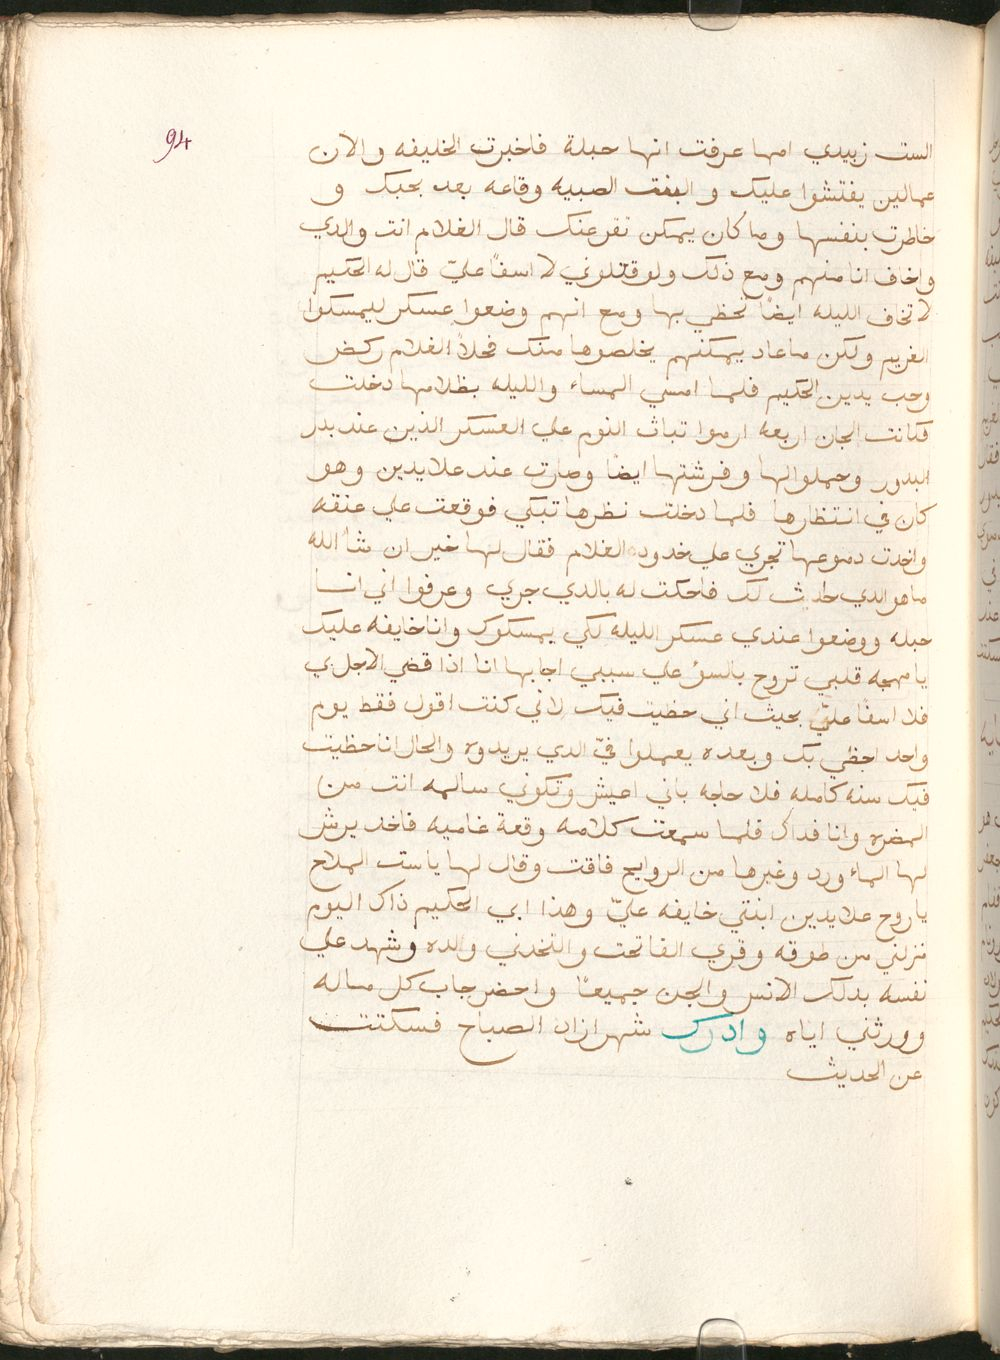 94
الست زبيدي امها عرفت انها حبلة فاخبرت الخليفه والان
عمالين يفتشوا عليك والبنت الصبيه وقاعه بعد بحبك و
خاطرت بنفسها وما كان يمكن تقر عنك قال الغلام انت والدي
واخاف انا منهم ومع ذلك ولو قتلوني لا اسفاً عليّ قال له الحكيم
لا تخاف الليله ايضاً تحظي بها ومع انهم وضعوا عسكر ليمسكوا
الغريم ولكن ما عاد يمكنهم يخلصوها منك فحلاً الغلام ركض
وحب يدين الحكيم فلما امسي المساء والليله بظلامها دخلت
فكانت الجان اربعه ارموا تباث النوم علي العسكر الذين عند بدر
البدور وحملوا لها وفرشتها ايضاً وصارت عند علايدين وهو
كان في انتظارها فلما دخلت نظرها تبكي فوقعت علي عنقه
واخدت دموعها تجري علي خدوده الغلام فقال لها خير ان شأ الله
ما هو الدي حادث لك فاحكت له بالدي جري وعرفوا اني انا
حبله ووضعوا عندي عسكر الليله لكي يمسكوك وانا خايفه عليك
يا مهجه قلبي تروح بالسؤ علي سببي اجابها انا اذا قضي الاجل بي
فلا اسفاً عليّ بحيث اني حظيت فيك لاني كنت اقول فقط يوم
واحد احظي بك وبعده يعملوا فيّ الدي يريدوه والحال انا حظيت
فيك سنه كامله فلا حاجه باني اعيش وتكوني سالمه انت من
المضره وانا فداك فلما سمعت كلامه وقعة غاميه فاخد يرش
لها الماء ورد وغيرها من الروايح فاقت وقال لها يا ست الملاح
يا روح علايدين ابنتي خايفه عليّ وهذا ابي الحكيم ذاك اليوم
نزلني من طوقه وقري الفاتحت واتخدني والده وشهد علي
نفسه بدلك الانس والجن جميعاً واحضر جاب كل ماله
وورثني اياه وادرك شهرازاد الصباح فسكتت
عن الحديث